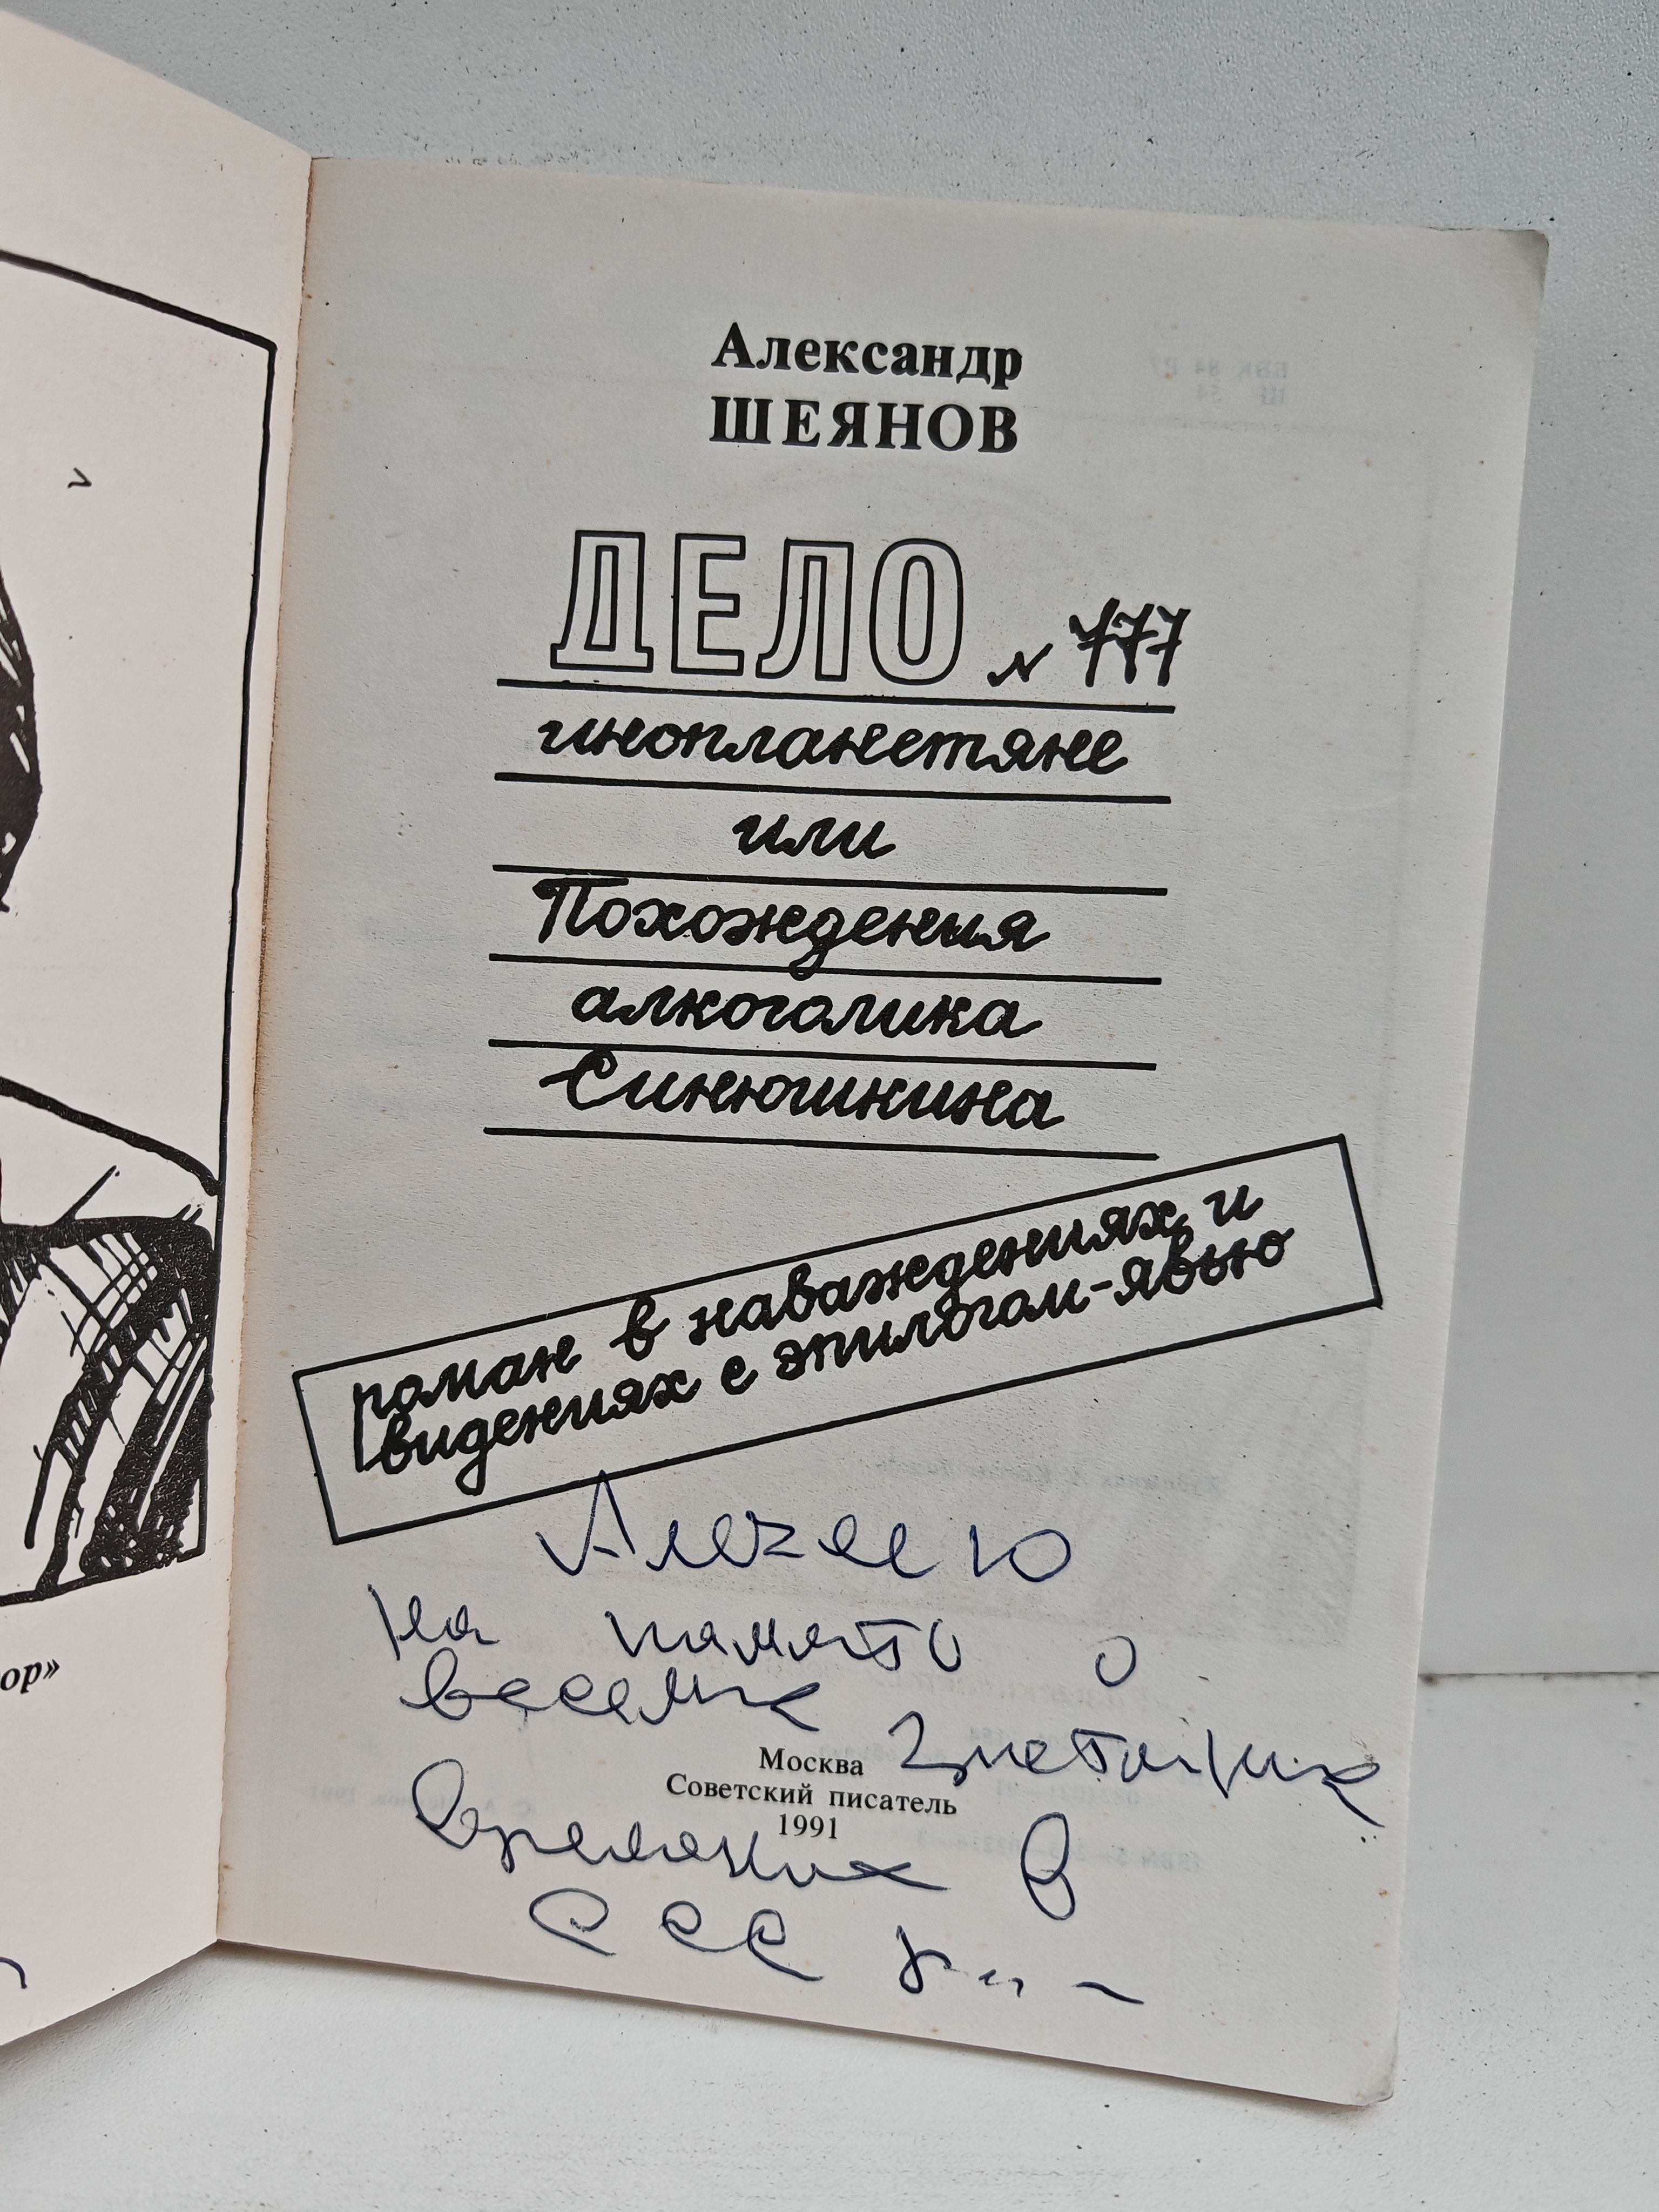 Александр
ШЕЯНОВ
ДЕЛО № 777
инопланетяне
или
Похождения
алкоголика
Синюшкина
роман в наваждениях и
видениях с эпилогом-явью
Алексею
на память о
весёлых
Москва
Советский писатель
1991
временах в
СССР...
ор»